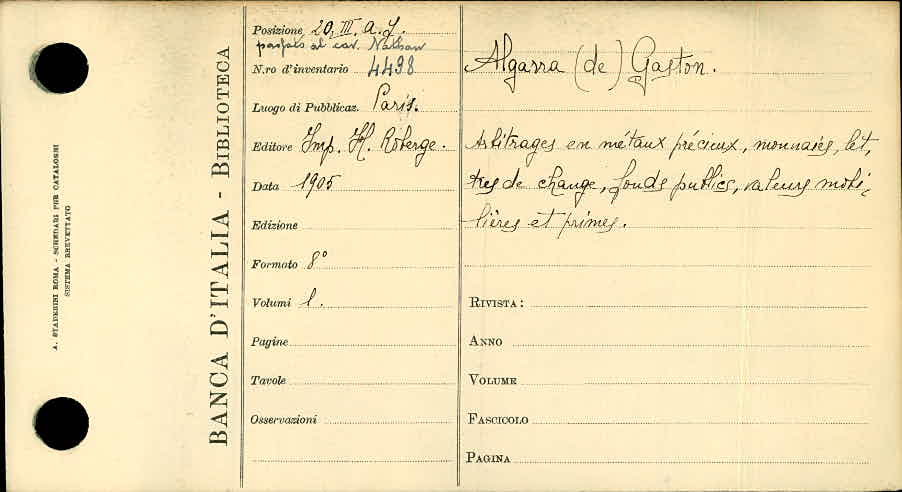 A. STADERINI ROMA - SCHEDARI PER CATALOGHI
SISTEMA BREVETTATO
BANCA D'ITALIA - BIBLIOTECA
Posizione 20. III. a. 7.
al cav. Nathan
N.ro d'inventario 4498
Luogo di Pubblicaz. Paris.
Editore Imp. H. Roberge.
Data 1905
Edizione
Formato 8°
Volumi 1.
Pagine
Tavole
Osservazioni
Algarra (de) Gaston.
Arbitrages en métaux précieux, monnaies, let,
tres de change, fonds publics, valeurs mobi-
lières et primes.
RIVISTA:
ANNO
VOLUME
FASCICOLO
PAGINA